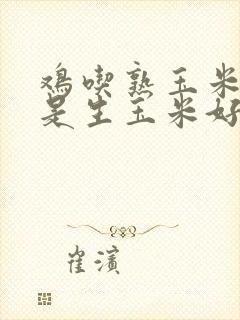 鸡喫熟玉米
是生玉米好
崔滨